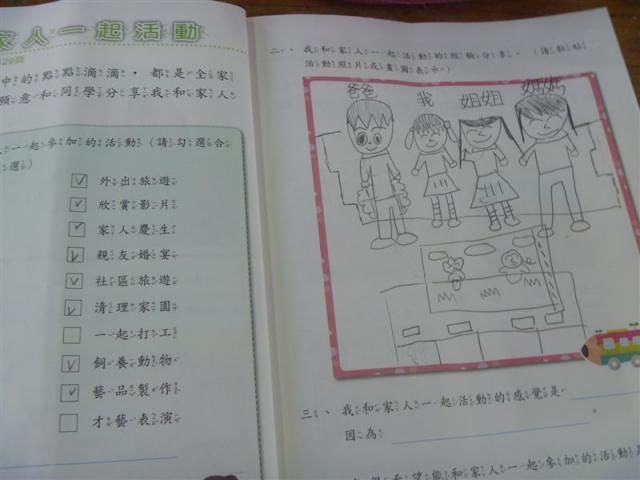 家人一起活動
中的點點滴滴，都是全家
願意和同學分享我和家人
人一起參加的活動(請勾選合
選)
外出旅遊
欣賞影片
家人慶生
親友婚宴
社區旅遊
清理家園
一起打工
飼養動物
藝品製作
才藝表演
二、我和家人一起活動的經驗分享。(請黏貼
活動照片或畫圖表示)
爸爸 我 姐姐 媽媽
三、我和家人一起活動的感覺是
因為
能和家人一起參加的活動